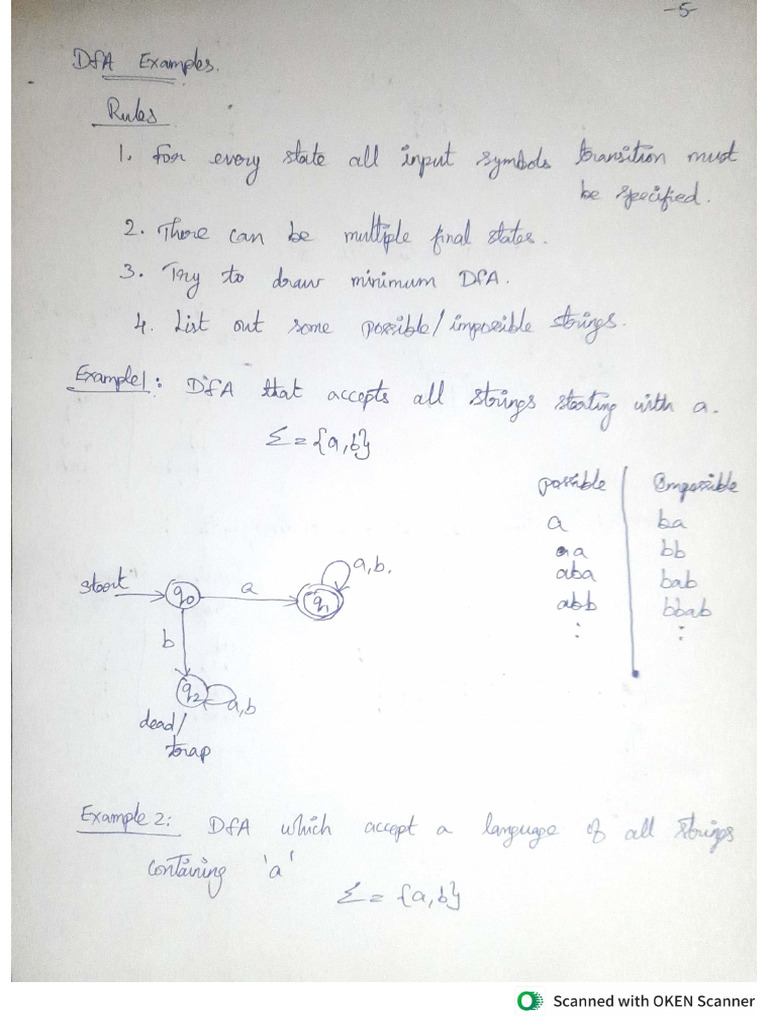 -5-
DFA Examples.
Rules
1. For every state all input symbols transition must
be specified.
2. There can be multiple final states.
3. Try to draw minimum DFA.
4. List out some possible/impossible strings.
Example1: DFA that accepts all strings starting with a.
Σ = {a,b}
possible impossible
a ba
aa bb
aba bab
abb bbab
⋮ ⋮
start q0 a q1 a,b.
b
q2 a,b
dead/
trap
Example 2: DFA which accept a language of all strings
containing 'a'
Σ = {a,b}
Scanned with OKEN Scanner